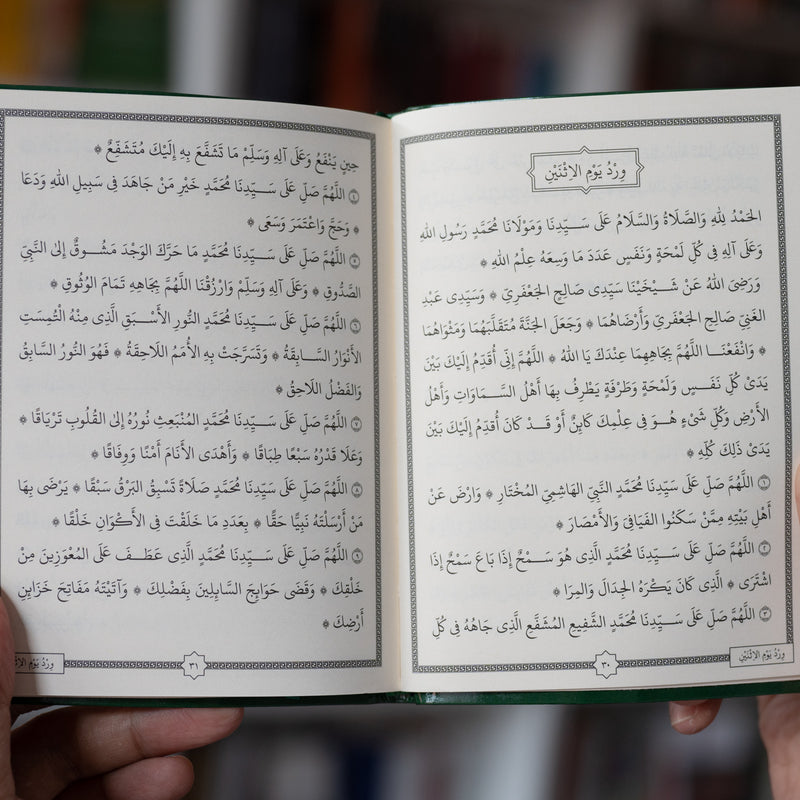 وِرْدُ يَوْمِ الاِثْنَيْنِ
الحَمْدُ لِلهِ وَالصَّلَاةُ وَالسَّلَامُ عَلَى سَيِّدِنَا وَمَوْلَانَا مُحَمَّدٍ رَسُولِ اللهِ
وَعَلَى آلِهِ فِى كُلِّ لَمْحَةٍ وَنَفَسٍ عَدَدَ مَا وَسِعَهُ عِلْمُ اللهِ *
وَرَضِىَ اللهُ عَنْ شَيْخَيْنَا سَيِّدِى صَالِحٍ الجَعْفَرِيِّ * وَسَيِّدِى عَبْدِ
الغَنِيِّ صَالِحِ الجَعْفَرِيِّ وَأَرْضَاهُمَا * وَجَعَلَ الجَنَّةَ مُتَقَلَّبَهُمَا وَمَثْوَاهُمَا
* وَانْفَعْنَا اللَّهُمَّ بِجَاهِهِمَا عِنْدَكَ يَا اللهُ * اللَّهُمَّ إِنِّى أُقَدِّمُ إِلَيْكَ بَيْنَ
يَدَىْ كُلِّ نَفَسٍ وَلَمْحَةٍ وَطَرْفَةٍ يَطْرِفُ بِهَا أَهْلُ السَّمَاوَاتِ وَأَهْلُ
الأَرْضِ وَكُلُّ شَىْءٍ هُوَ فِى عِلْمِكَ كَائِنٌ أَوْ قَدْ كَانَ أُقَدِّمُ إِلَيْكَ بَيْنَ
يَدَىْ ذَلِكَ كُلِّهِ *
١ اللَّهُمَّ صَلِّ عَلَى سَيِّدِنَا مُحَمَّدٍ النَّبِيِّ الهَاشِمِيِّ المُخْتَارِ * وَارْضَ عَنْ
أَهْلِ بَيْتِهِ مِمَّنْ سَكَنُوا الفَيَافِىَ وَالأَمْصَارَ *
٢ اللَّهُمَّ صَلِّ عَلَى سَيِّدِنَا مُحَمَّدٍ الَّذِى هُوَ سَمْحٌ إِذَا بَاعَ سَمْحٌ إِذَا
اشْتَرَى * الَّذِى كَانَ يَكْرَهُ الجِدَالَ وَالمِرَا *
٣ اللَّهُمَّ صَلِّ عَلَى سَيِّدِنَا مُحَمَّدٍ الشَّفِيعِ المُشَفَّعِ الَّذِى جَاهُهُ فِى كُلِّ
وِرْدُ يَوْمِ الاِثْنَيْنِ
٣٠
حِينٍ يَنْفَعُ وَعَلَى آلِهِ وَسَلِّمْ مَا تَشَفَّعَ بِهِ إِلَيْكَ مُتَشَفِّعٌ *
٤ اللَّهُمَّ صَلِّ عَلَى سَيِّدِنَا مُحَمَّدٍ خَيْرِ مَنْ جَاهَدَ فِى سَبِيلِ اللهِ وَدَعَا
* وَحَجَّ وَاعْتَمَرَ وَسَعَى *
٥ اللَّهُمَّ صَلِّ عَلَى سَيِّدِنَا مُحَمَّدٍ مَا حَرَّكَ الوَجْدَ مَشُوقٌ إِلَى النَّبِيِّ
الصَّدُوقِ * وَعَلَى آلِهِ وَسَلِّمْ وَارْزُقْنَا اللَّهُمَّ بِجَاهِهِ تَمَامَ الوُثُوقِ *
٦ اللَّهُمَّ صَلِّ عَلَى سَيِّدِنَا مُحَمَّدٍ النُّورِ الأَسْبَقِ الَّذِى مِنْهُ الْتُمِسَتِ
الأَنْوَارُ السَّابِقَةُ * وَتَسَرَّجَتْ بِهِ الأُمَمُ اللَّاحِقَةُ * فَهُوَ النُّورُ السَّابِقُ
وَالفَضْلُ اللَّاحِقُ *
٧ اللَّهُمَّ صَلِّ عَلَى سَيِّدِنَا مُحَمَّدٍ المُنْبَعِثِ نُورُهُ إِلَى القُلُوبِ تَرْيَاقًا *
وَعَلَا قَدْرُهُ سَبْعًا طِبَاقًا * وَأَهْدَى الأَنَامَ أَمْنًا وَوِفَاقًا *
٨ اللَّهُمَّ صَلِّ عَلَى سَيِّدِنَا مُحَمَّدٍ صَلَاةً تَسْبِقُ البَرْقَ سَبْقًا * يَرْضَى بِهَا
مَنْ أَرْسَلْتَهُ نَبِيًّا حَقًّا * بِعَدَدِ مَا خَلَقْتَ فِى الأَكْوَانِ خَلْقًا *
٩ اللَّهُمَّ صَلِّ عَلَى سَيِّدِنَا مُحَمَّدٍ الَّذِى عَطَفَ عَلَى المُعْوَزِينَ مِنْ
خَلْقِكَ * وَقَضَى حَوَايِجَ السَّايِلِينَ بِفَضْلِكَ * وَآتَيْتَهُ مَفَاتِحَ خَزَايِنِ
أَرْضِكَ *
وِرْدُ يَوْمِ الاِثْنَيْنِ
٣١